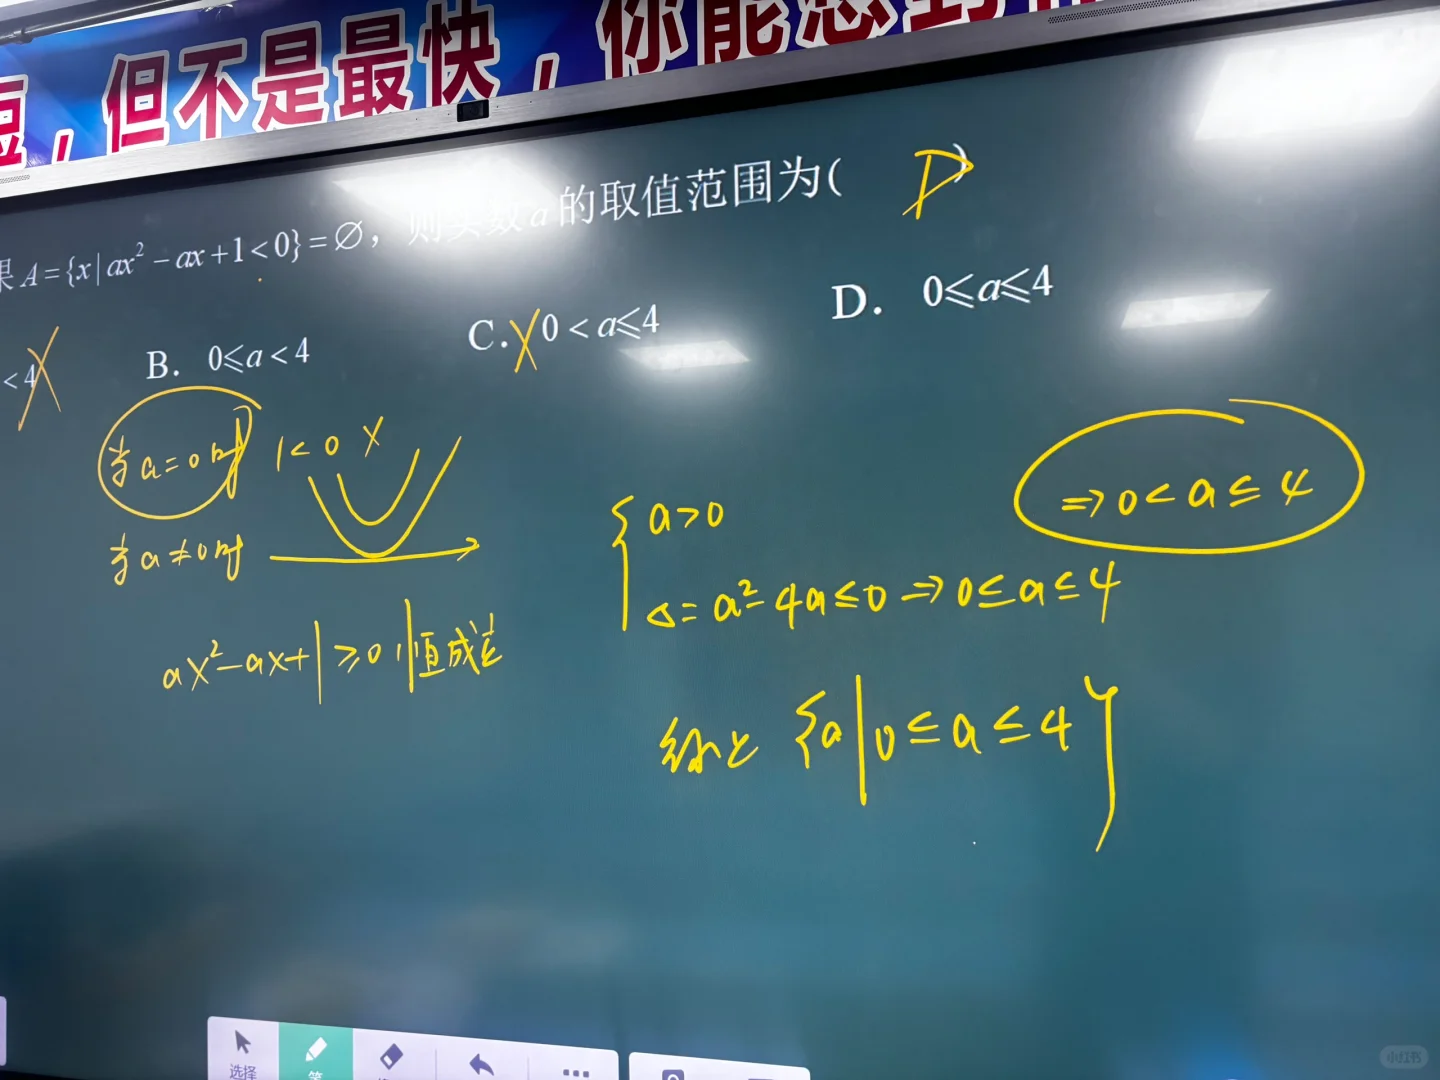 短，但不是最快，你能想到
果 A={x|ax²-ax+1<0}=∅，则实数a的取值范围为( D )
<4 X
B. 0≤a<4
C. X 0<a≤4
D. 0≤a≤4
当a=0时 1<0 X
当a≠0时
ax²-ax+1≥0，恒成立
{ a>0
Δ=a²-4a≤0⇒0≤a≤4
⇒0<a≤4
综上 {a|0≤a≤4}
选择
笔
小红书